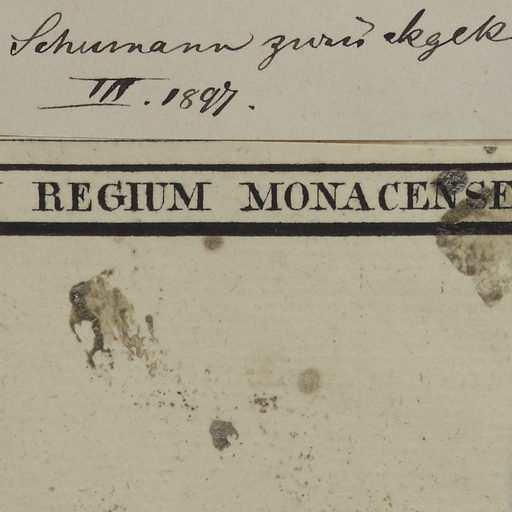 Schumann zurückgek
III. 1897.
REGIUM MONACENSE